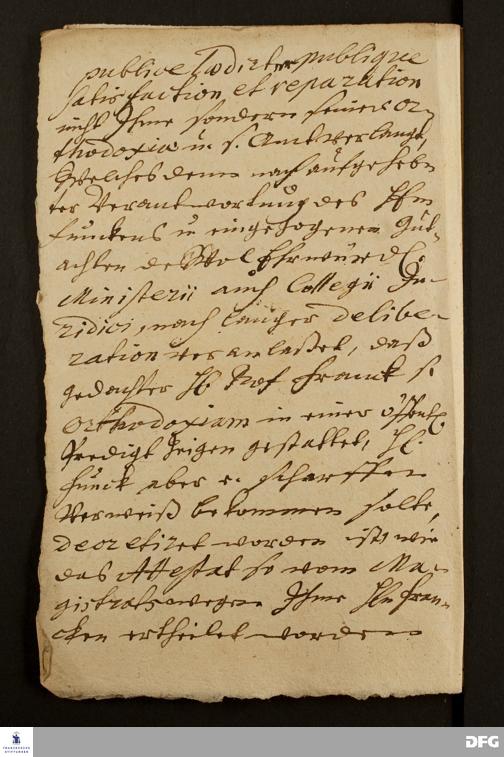 publice tradirter publique
satisfaction et reparation
nicht Ihme sondern seiner or-
thodoxia u s. Amt verlangt,
Welches denn nach aufgehebe-
ter Verantwortung des Hln
Funckens u eingezogenen Gut-
achten des Wol Ehrwürdl:
Ministerii auch Collegii Ju-
ridici, nach langer delibe-
ration veranlaßet, daß
gedachter H. Prof Franck s.
Orthodoxiam in einer öffentl
Predigt zeigen gestattet, H.
Funck aber e. scharffen
Verweiß bekommen solte,
decretiret worden ist, wie
das Attestat so vom Ma-
gistratswegen Ihme Hln Fran-
cken ertheilet worden
FRANCKESCHE
STIFTUNGEN
DFG